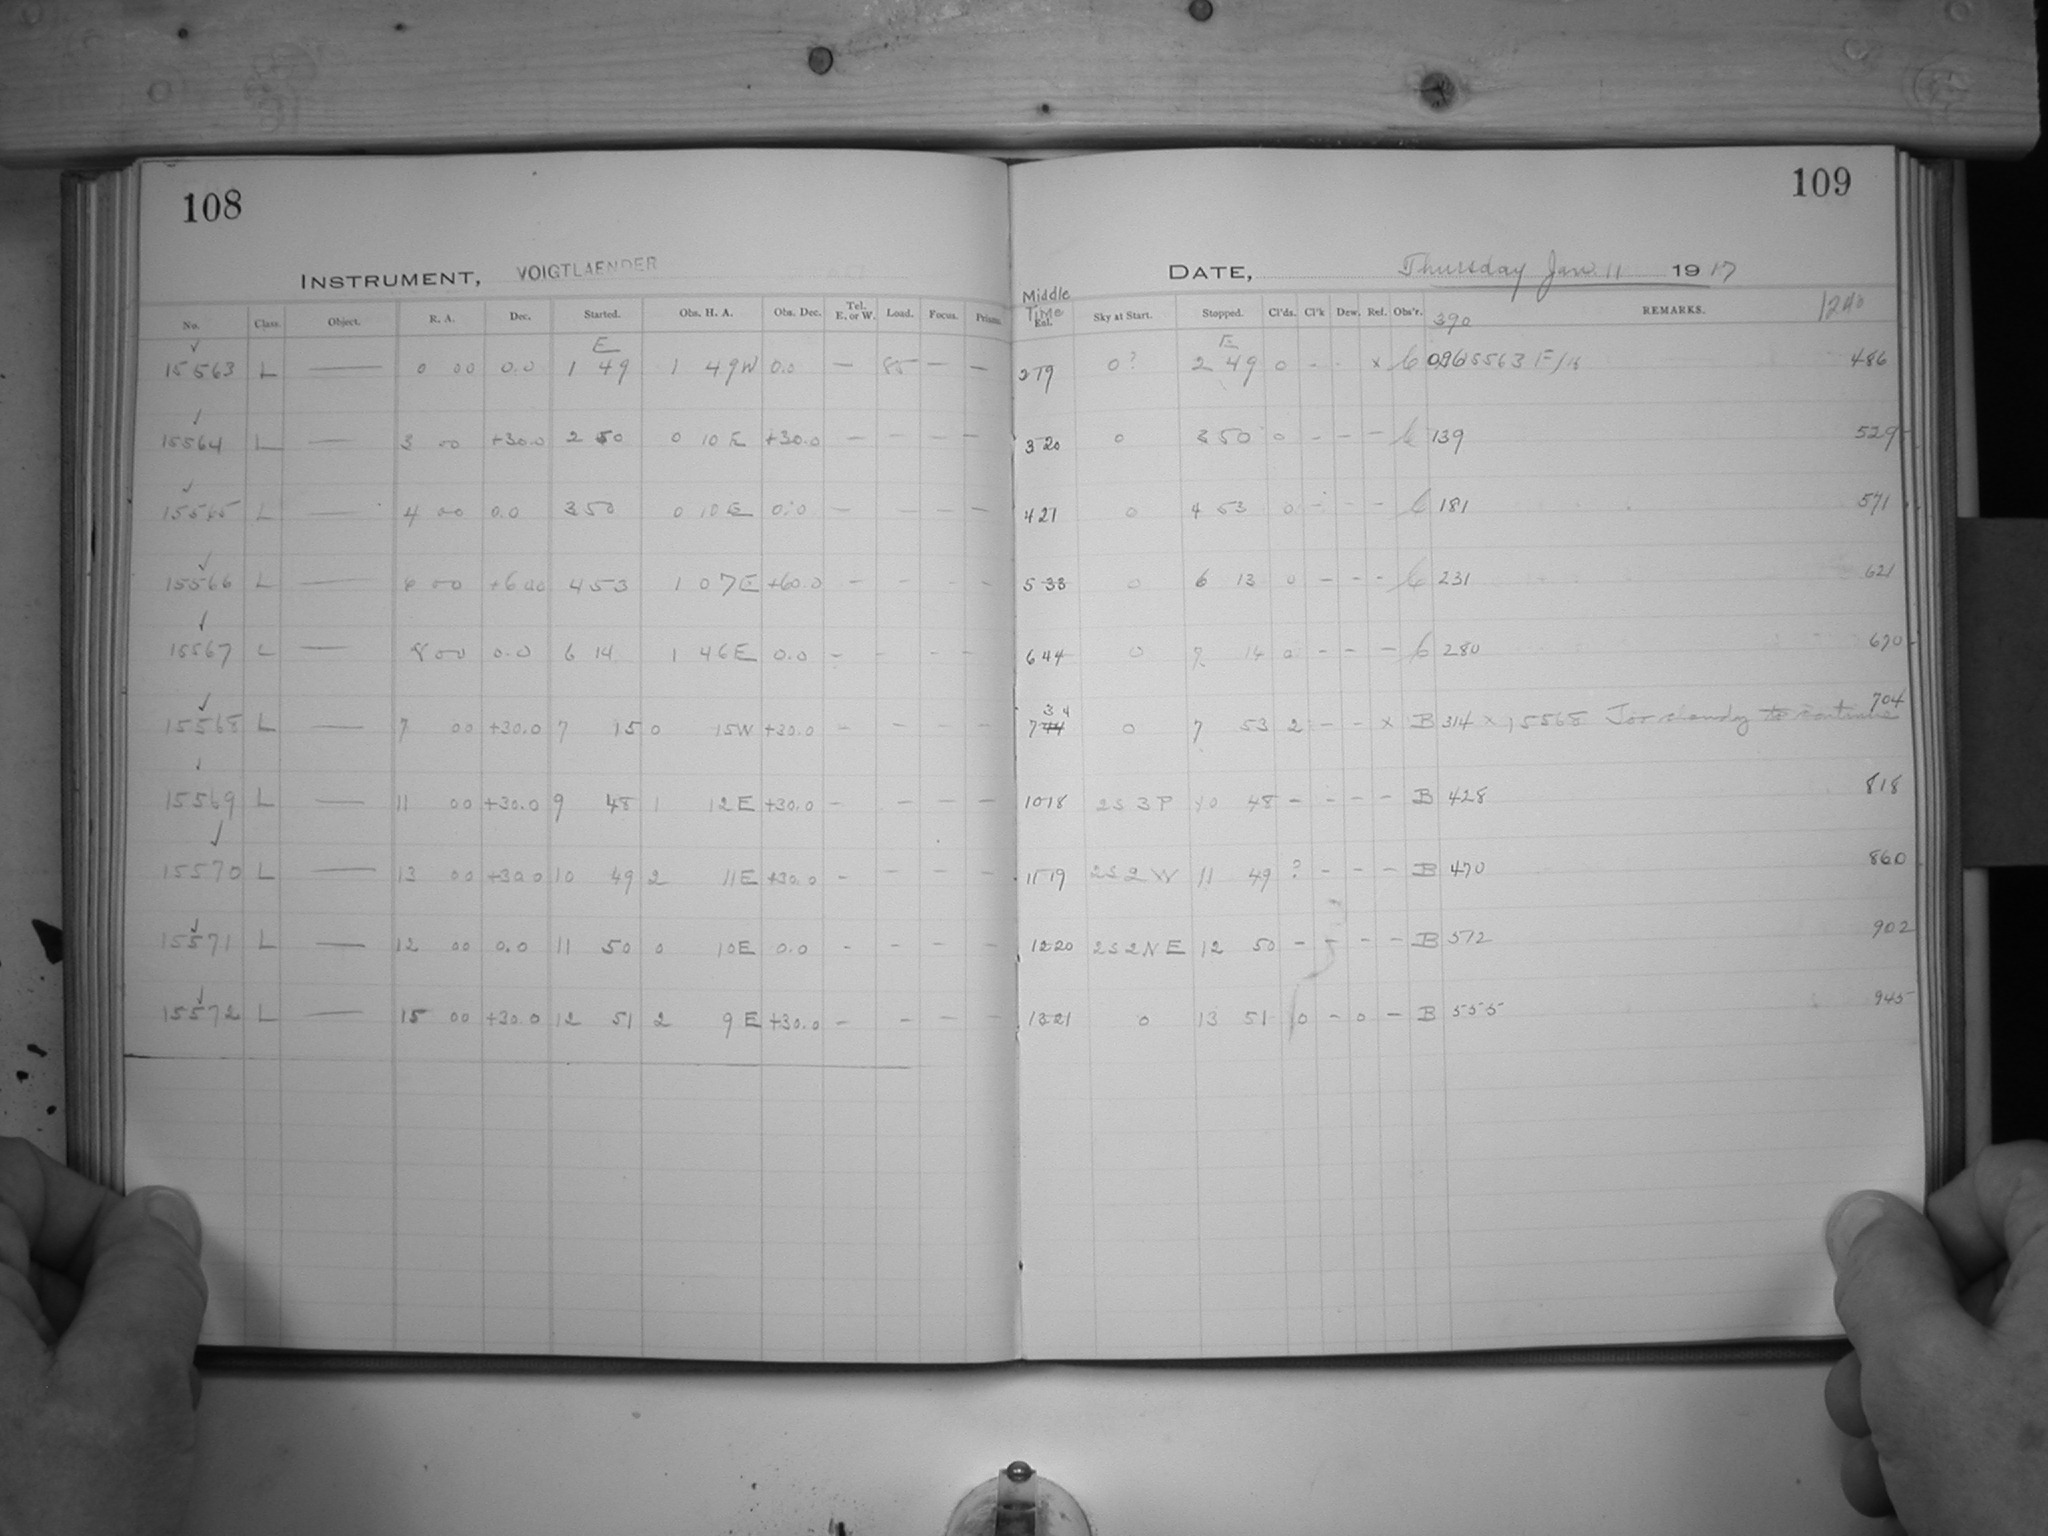 108
109
INSTRUMENT, VOIGTLAENDER
DATE, Thursday Jan. 11 1917
No. Class. Object. R. A. Dec. Started. Obs. H. A. Obs. Dec. Tel. E. or W. Load. Focus. Prisms. Middle Time Est. Sky at Start. Stopped. Cl'ds. Cl'k Dew. Rel. Obs'r. 390 REMARKS. 1240
E E
15563 L — 0 00 0.0 1 49 1 49W 0.0 — 85 — — 2 19 0? 2 49 0 - - x 15563 F/16 486
15564 L — 3 00 +30.0 2 50 0 10 E +30.0 — — — — 3 20 0 3 50 0 - - - 139 529
15565 L — 4 00 0.0 3 50 0 10 E 0.0 — — — 4 21 0 4 53 0 - - - 181 571
15566 L — 6 00 +60.0 4 53 1 07 E +60.0 — — — — 5 33 0 6 13 0 - - - 231 621
15567 L — 8 00 0.0 6 14 1 46 E 0.0 - - - - 6 44 0 7 14 0 - - - 280 670
15568 L — 7 00 +30.0 7 15 0 15W +30.0 - - - - 7 34 0 7 53 2 - - x B 314 x 15568 Too cloudy to continue 704
15569 L — 11 00 +30.0 9 48 1 12 E +30.0 - - - - 10 18 2S 3P 10 48 - - - - B 428 818
15570 L — 13 00 +30.0 10 49 2 11 E +30.0 - - - - 11 19 2S 2 W 11 49 ? - - - B 470 860
15571 L — 12 00 0.0 11 50 0 10 E 0.0 - - - - 12 20 2S 2 N E 12 50 - - - - B 512 902
15572 L — 15 00 +30.0 12 51 2 9 E +30.0 - - - - 13 21 0 13 51 0 - 0 - B 555 945